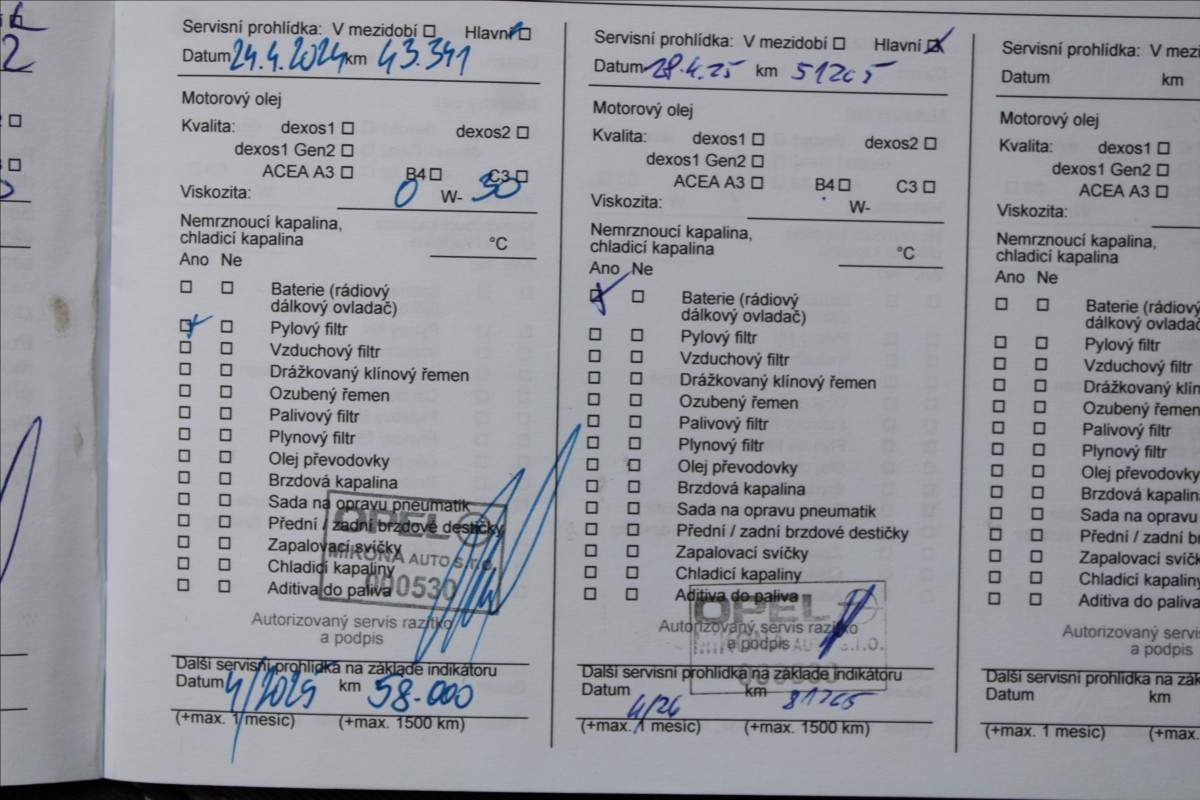 2
Servisní prohlídka: V mezidobí ☐ Hlavní ☐
Datum 24.4.2024 km 43.341
Motorový olej
Kvalita: dexos1 ☐ dexos2 ☐
dexos1 Gen2 ☐
ACEA A3 ☐ B4 ☐ C3 ☐
Viskozita: 0 W- 30
Nemrznoucí kapalina,
chladicí kapalina °C
Ano Ne
☐ ☐ Baterie (rádiový
dálkový ovladač)
☒ ☐ Pylový filtr
☐ ☐ Vzduchový filtr
☐ ☐ Drážkovaný klínový řemen
☐ ☐ Ozubený řemen
☐ ☐ Palivový filtr
☐ ☐ Plynový filtr
☐ ☐ Olej převodovky
☐ ☐ Brzdová kapalina
☐ ☐ Sada na opravu pneumatik
☐ ☐ Přední / zadní brzdové destičky
☐ ☐ Zapalovací svíčky
☐ ☐ Chladicí kapaliny
☐ ☐ Aditiva do paliva
OPEL
MIRONA AUTO s.r.o.
000530
Autorizovaný servis razítko
a podpis
Další servisní prohlídka na základe indikátoru
Datum 4/2025 km 58.000
(+max. 1 mesíc) (+max. 1500 km)
Servisní prohlídka: V mezidobí ☐ Hlavní ☒
Datum 28.4.25 km 51265
Motorový olej
Kvalita: dexos1 ☐ dexos2 ☐
dexos1 Gen2 ☐
ACEA A3 ☐ B4 ☐ C3 ☐
Viskozita: W-
Nemrznoucí kapalina,
chladicí kapalina °C
Ano Ne
☒ ☐ Baterie (rádiový
dálkový ovladač)
☐ ☐ Pylový filtr
☐ ☐ Vzduchový filtr
☐ ☐ Drážkovaný klínový řemen
☐ ☐ Ozubený řemen
☐ ☐ Palivový filtr
☐ ☐ Plynový filtr
☐ ☐ Olej převodovky
☐ ☐ Brzdová kapalina
☐ ☐ Sada na opravu pneumatik
☐ ☐ Přední / zadní brzdové destičky
☐ ☐ Zapalovací svíčky
☐ ☐ Chladicí kapaliny
☐ ☐ Aditiva do paliva
OPEL
Autorizovaný servis razítko
a podpis
Další servisní prohlídka na základe indikátoru
Datum 4/26 km 81265
(+max. 1 mesíc) (+max. 1500 km)
Servisní prohlídka: V mezi
Datum km
Motorový olej
Kvalita: dexos1 ☐
dexos1 Gen2 ☐
ACEA A3 ☐
Viskozita:
Nemrznoucí kapalina,
chladicí kapalina
Ano Ne
☐ ☐ Baterie (rádiový
dálkový ovladač
☐ ☐ Pylový filtr
☐ ☐ Vzduchový filtr
☐ ☐ Drážkovaný klín
☐ ☐ Ozubený řemen
☐ ☐ Palivový filtr
☐ ☐ Plynový filtr
☐ ☐ Olej převodovky
☐ ☐ Brzdová kapalin
☐ ☐ Sada na opravu
☐ ☐ Přední / zadní br
☐ ☐ Zapalovací svíčk
☐ ☐ Chladicí kapaliny
☐ ☐ Aditiva do paliva
Autorizovaný servis
a podpis
Další servisní prohlídka na zák
Datum km
(+max. 1 mesíc) (+max.